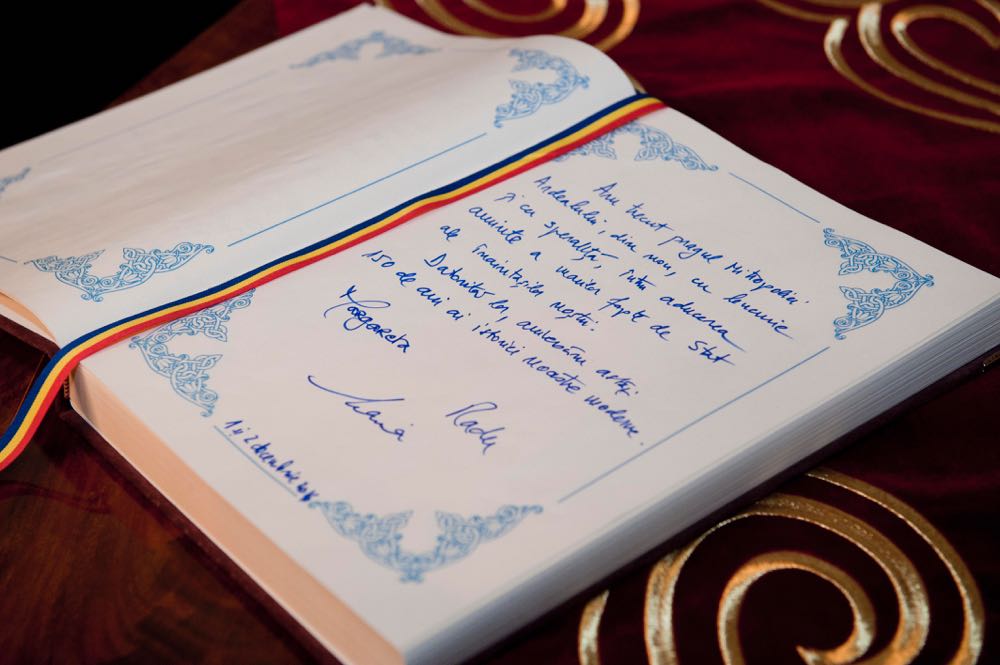 Am trecut pragul Mitropoliei
Ardealului, din nou, cu bucurie
și cu speranță, întru aducerea
aminte a marilor fapte de stat
ale înaintașilor noștri.
Datorită lor, aniversăm astăzi
150 de ani ai istoriei noastre moderne.
Margareta
Radu
Maria
1 și 2 decembrie